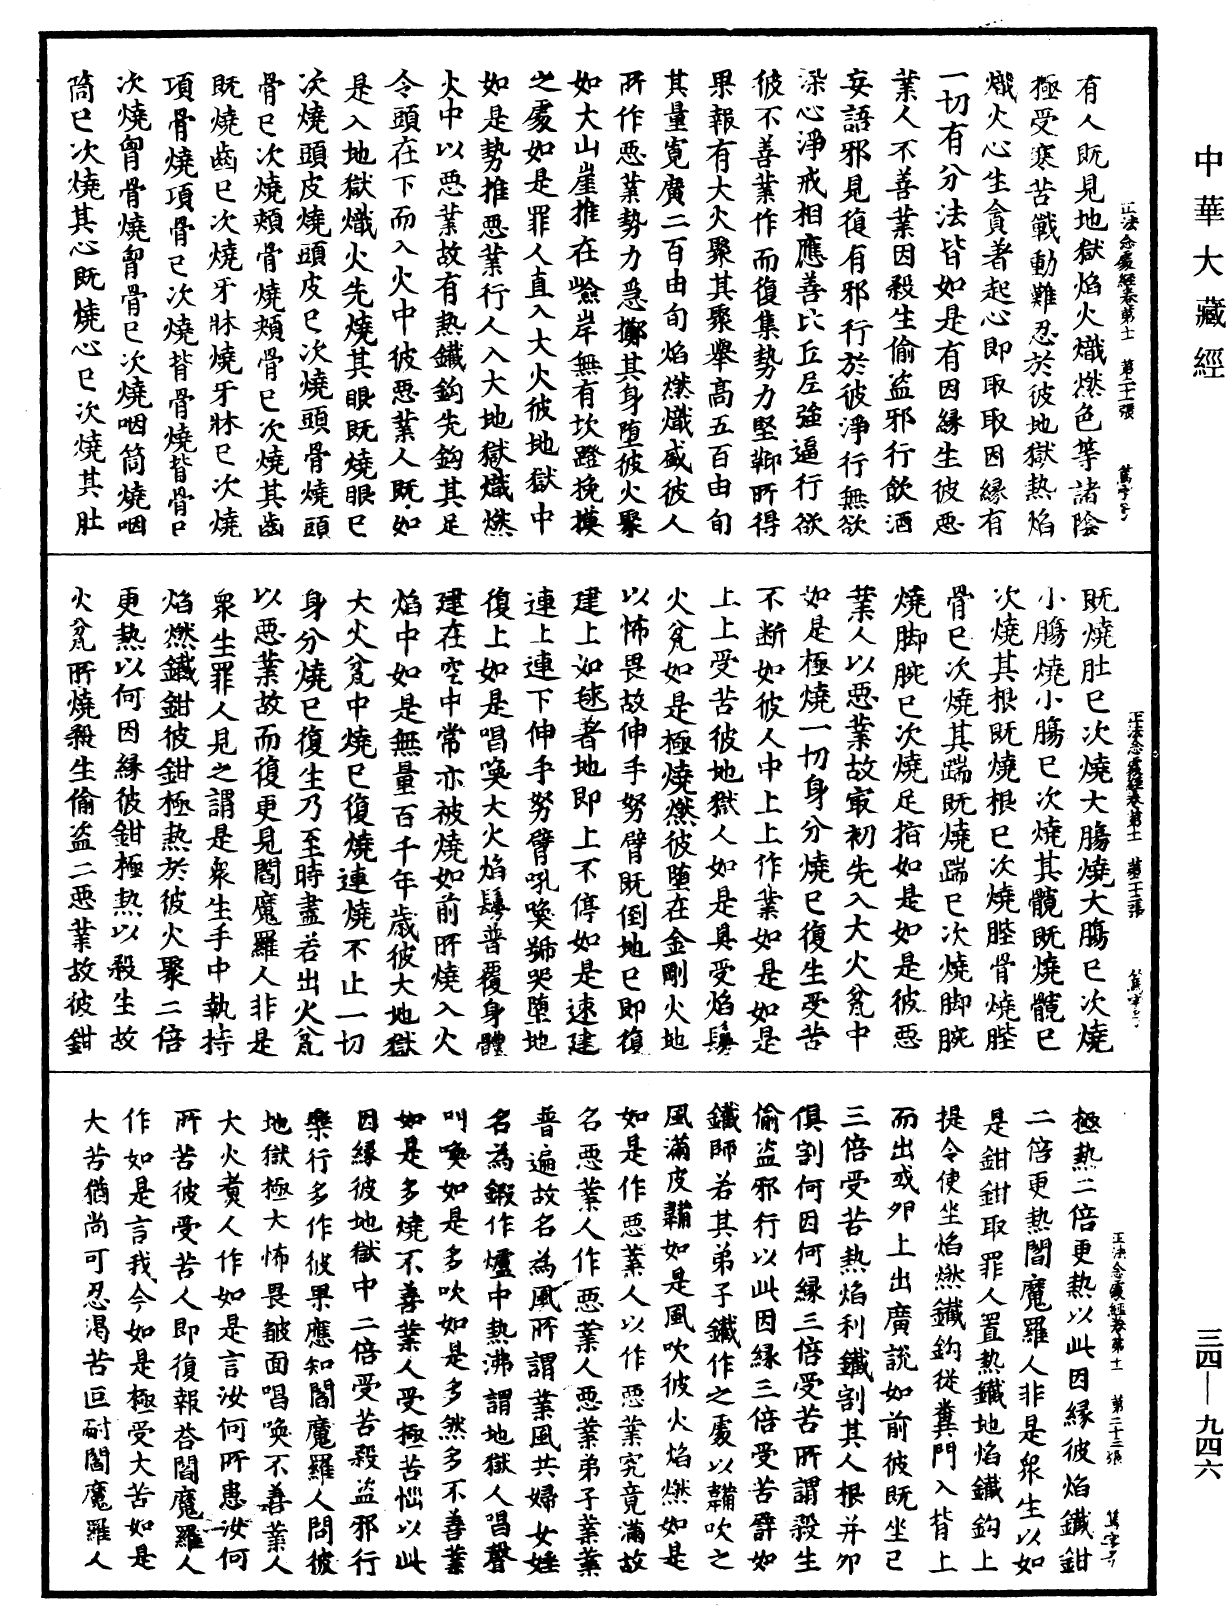 中華大藏經
正法念處經卷第十一 第二十一張 篤字号
有人既見地獄焰火熾燃色等諸陰
極受寒苦戰動難忍於彼地獄熱焰
熾火心生貪著起心即取取因緣有
一切有分法皆如是有因緣生彼惡
業人不善業因殺生偷盜邪行飲酒
妄語邪見復有邪行於彼淨行無欲
染心淨戒相應善比丘尼強逼行欲
彼不善業作而復集勢力堅鞕所得
果報有大火聚其聚舉高五百由旬
其量寬廣二百由旬焰燃熾盛彼人
所作惡業勢力急擲其身墮彼火聚
如大山崖推在嶮岸無有坎蹬挽摸
之處如是罪人直入大火彼地獄中
如是勢推惡業行人入大地獄熾燃
火中以惡業故有熱鐵鉤先鉤其足
令頭在下而入火中彼惡業人既如
是入地獄熾火先燒其眼既燒眼已
次燒頭皮燒頭皮已次燒頭骨燒頭
骨已次燒頰骨燒頰骨已次燒其齒
既燒齒已次燒牙牀燒牙牀已次燒
項骨燒項骨已次燒背骨燒背骨已
次燒胷骨燒胷骨已次燒咽筒燒咽
筒已次燒其心既燒心已次燒其肚
正法念處經卷第十一 第二十二張 篤字号
既燒肚已次燒大膓燒大膓已次燒
小膓燒小膓已次燒其髖既燒髖已
次燒其根既燒根已次燒䏶骨燒䏶
骨已次燒其踹既燒踹已次燒脚腕
燒脚腕已次燒足指如是如是彼惡
業人以惡業故最初先入大火瓮中
如是極燒一切身分燒已復生受苦
不断如彼人中上上作業如是如是
上上受苦彼地獄人如是具受焰鬘
火瓮如是極燒燃彼墮在金剛火地
以怖畏故伸手努臂既倒地已即復
建上如毬著地即上不停如是速建
連上連下伸手努臂吼喚號哭墮地
復上如是唱喚大火焰鬘普覆身體
建在空中常亦被燒如前所燒入火
焰中如是無量百千年歲彼大地獄
大火瓮中燒已復燒連燒不止一切
身分燒已復生乃至時盡若出火瓮
以惡業故而復更見閻魔羅人非是
衆生罪人見之謂是衆生手中執持
焰燃鐵鉗彼鉗極熱於彼火聚二倍
更熱以何因緣彼鉗極熱以殺生故
火瓮所燒殺生偷盜二惡業故彼鉗
正法念處經卷第十一 第二十三張 篤字号
極熱二倍更熱以此因緣彼焰鐵鉗
二倍更熱閻魔羅人非是衆生以如
是鉗鉗取罪人置熱鐵地焰鐵鉤上
提令使坐焰燃鐵鉤從糞門入背上
而出或夘上出廣說如前彼既坐已
三倍受苦熱焰利鐵割其人根并夘
俱割何因何緣三倍受苦所謂殺生
偷盜邪行以此因緣三倍受苦譬如
鐵師若其弟子鐵作之處以韛吹之
風滿皮韛如是風吹彼火焰燃如是
如是作惡業人以作惡業究竟滿故
名惡業人作惡業人惡業弟子業業
普遍故名為風所謂業風共婦女婬
名為鍛作爐中熱沸謂地獄人唱聲
叫喚如是多吹如是多然多不善業
如是多燒不善業人受極苦惱以此
因緣彼地獄中二倍受苦殺盜邪行
樂行多作彼果應知閻魔羅人問彼
地獄極大怖畏皺面唱喚不善業人
大火煑人作如是言汝何所患汝何
所苦彼受苦人即復報荅閻魔羅人
作如是言我今如是極受大苦如是
大苦猶尚可忍渴苦叵耐閻魔羅人
三四—九四六